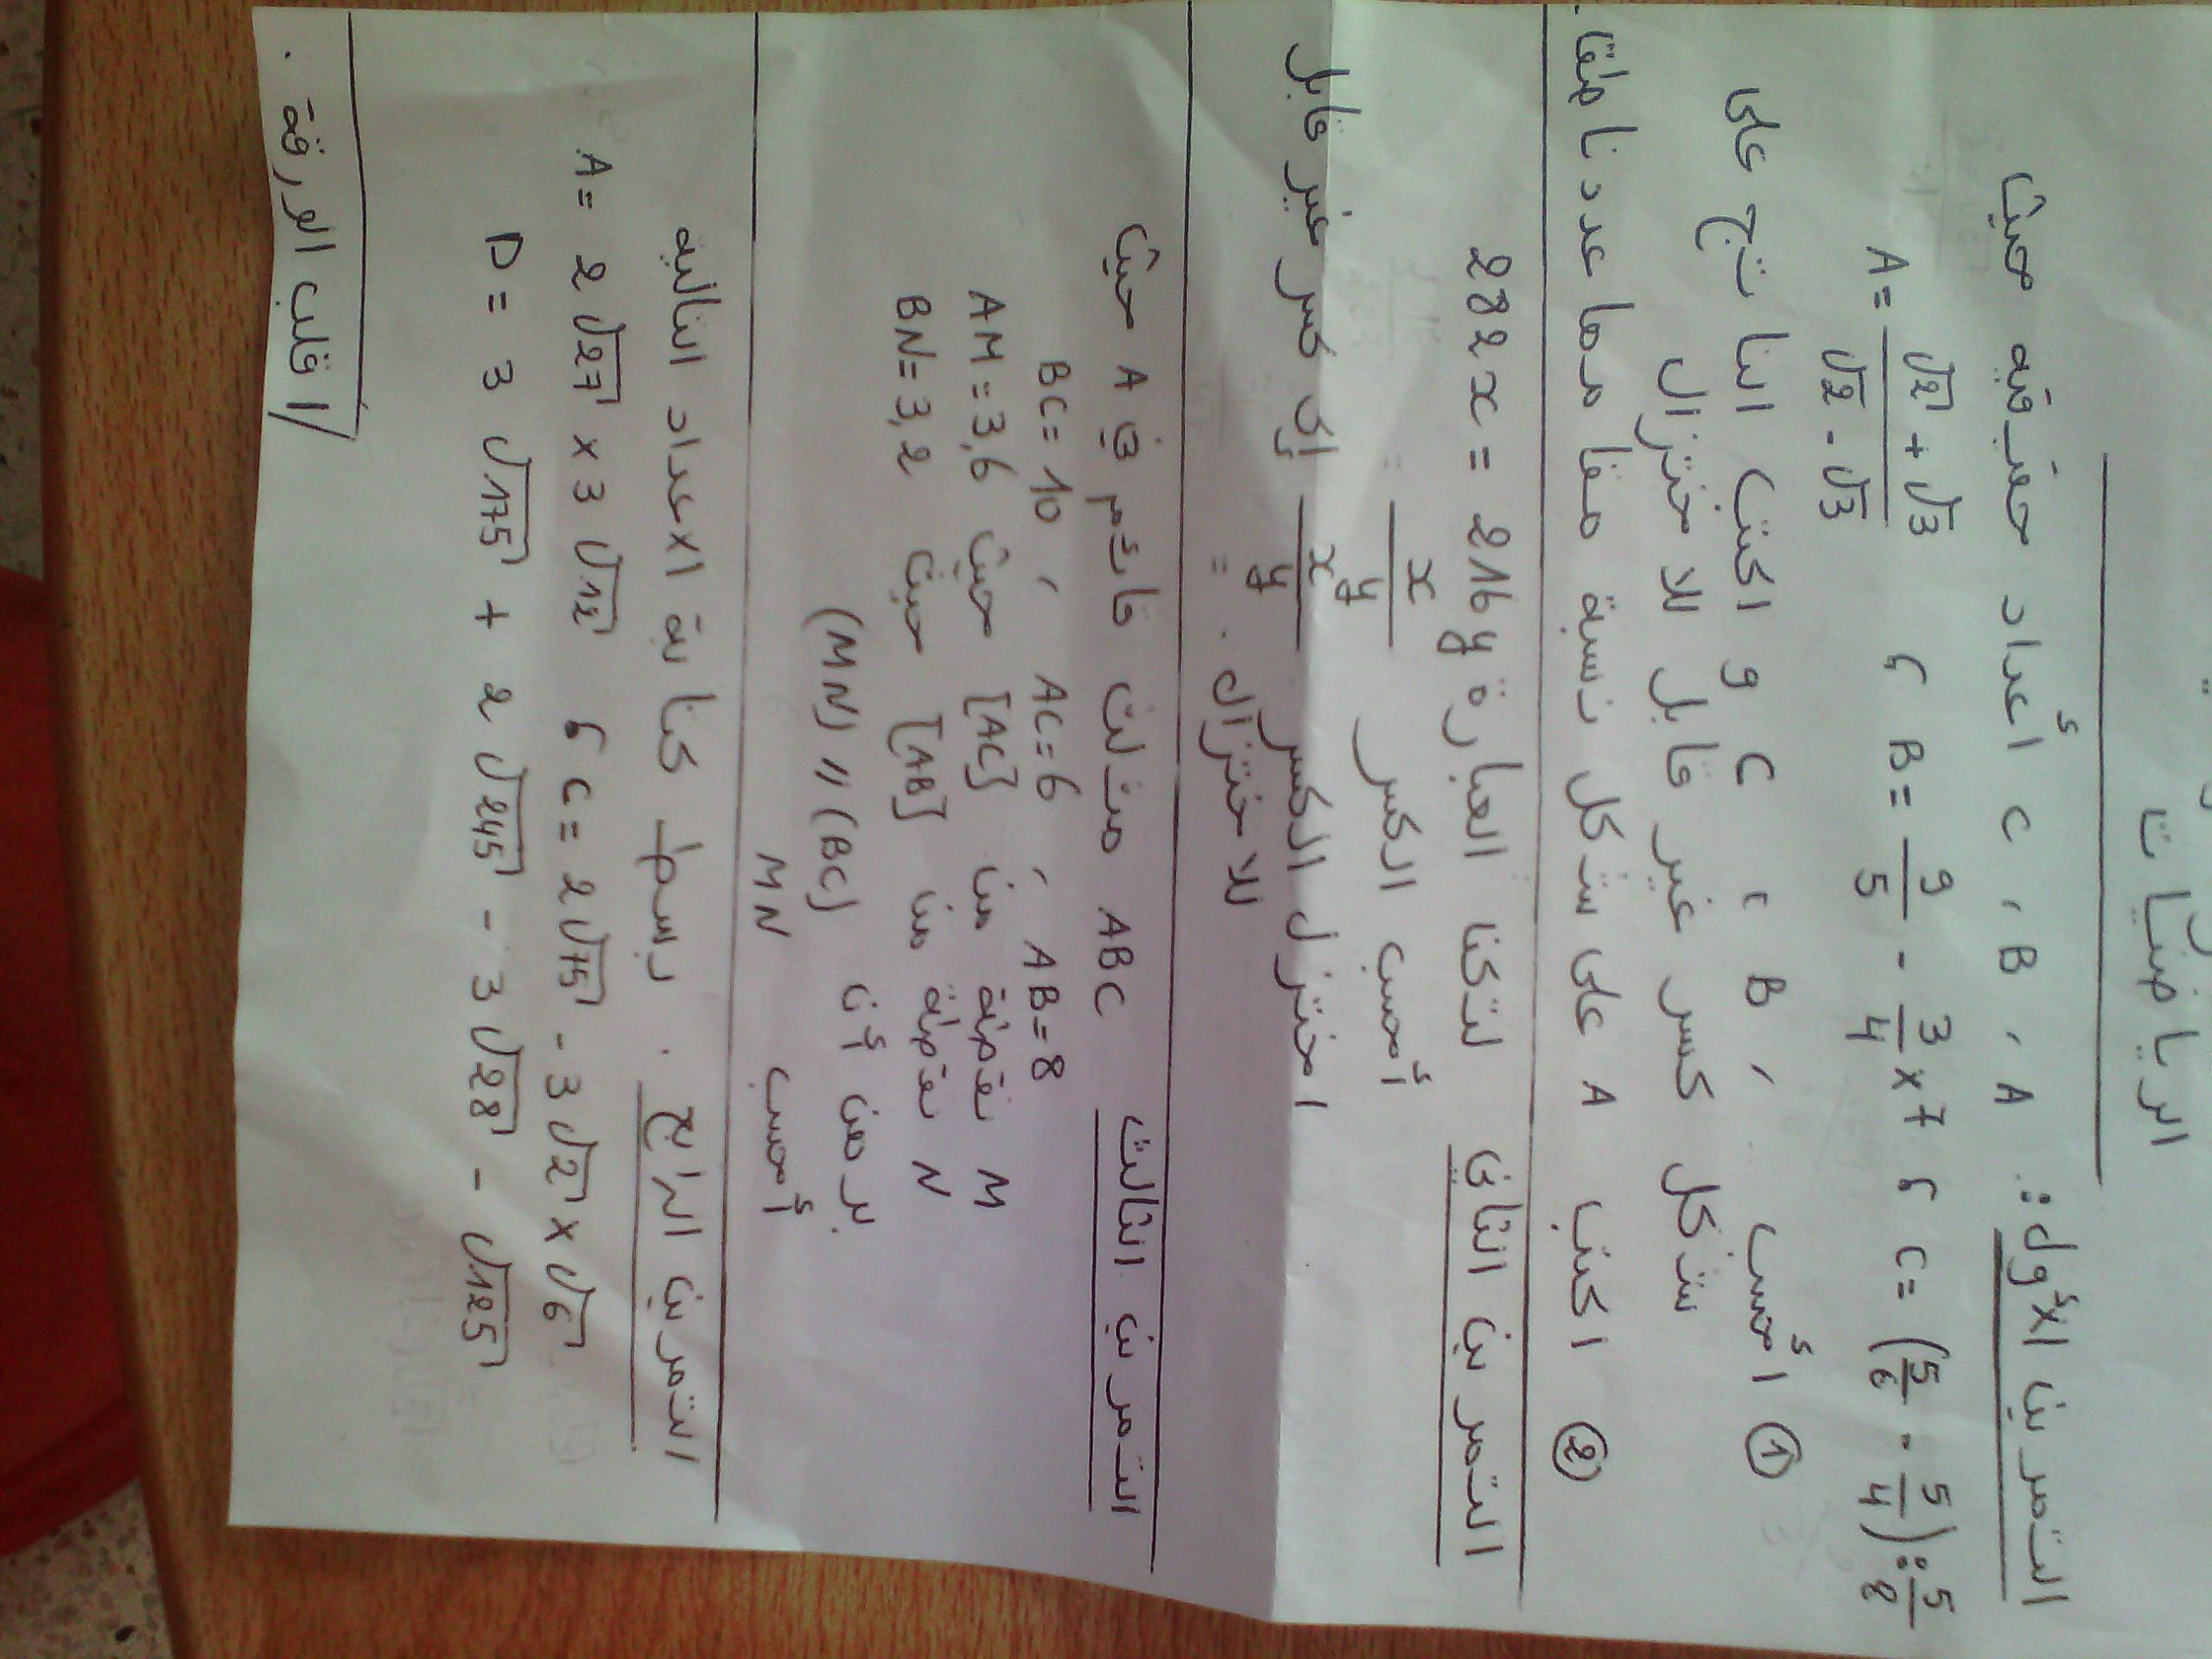 الرياضيات
التمرين الأول: A ، B ، C أعداد حقيقية حيث
A = (√2 + √3)/(√2 - √3) ، B = 9/5 - 3/4 × 7 ، C = (5/6 - 5/4) : 5/8
① أحسب ، B ، C و اكتب الناتج على
شكل كسر غير قابل للاختزال
② اكتب A على شكل نسبة مقامها عدد ناطقا.
التمرين الثاني لتكن العبارة 288x = 216y
أحسب الكسر x/y
اختزل الكسر x/y إلى كسر غير قابل
للاختزال . =
التمرين الثالث ABC مثلث قائم في A حيث
AB=8 ، AC=6 ، BC=10
M نقطة من [AC] حيث AM=3,6
N نقطة من [AB] حيث BN=3,2
برهن أن (MN) // (BC)
أحسب MN
التمرين الرابع . بسط كتابة الاعداد التالية
A= 2√27 × 3√12 ، C= 2√75 - 3√2 × √6
D= 3√175 + 2√245 - 3√28 - √125
اقلب الورقة .